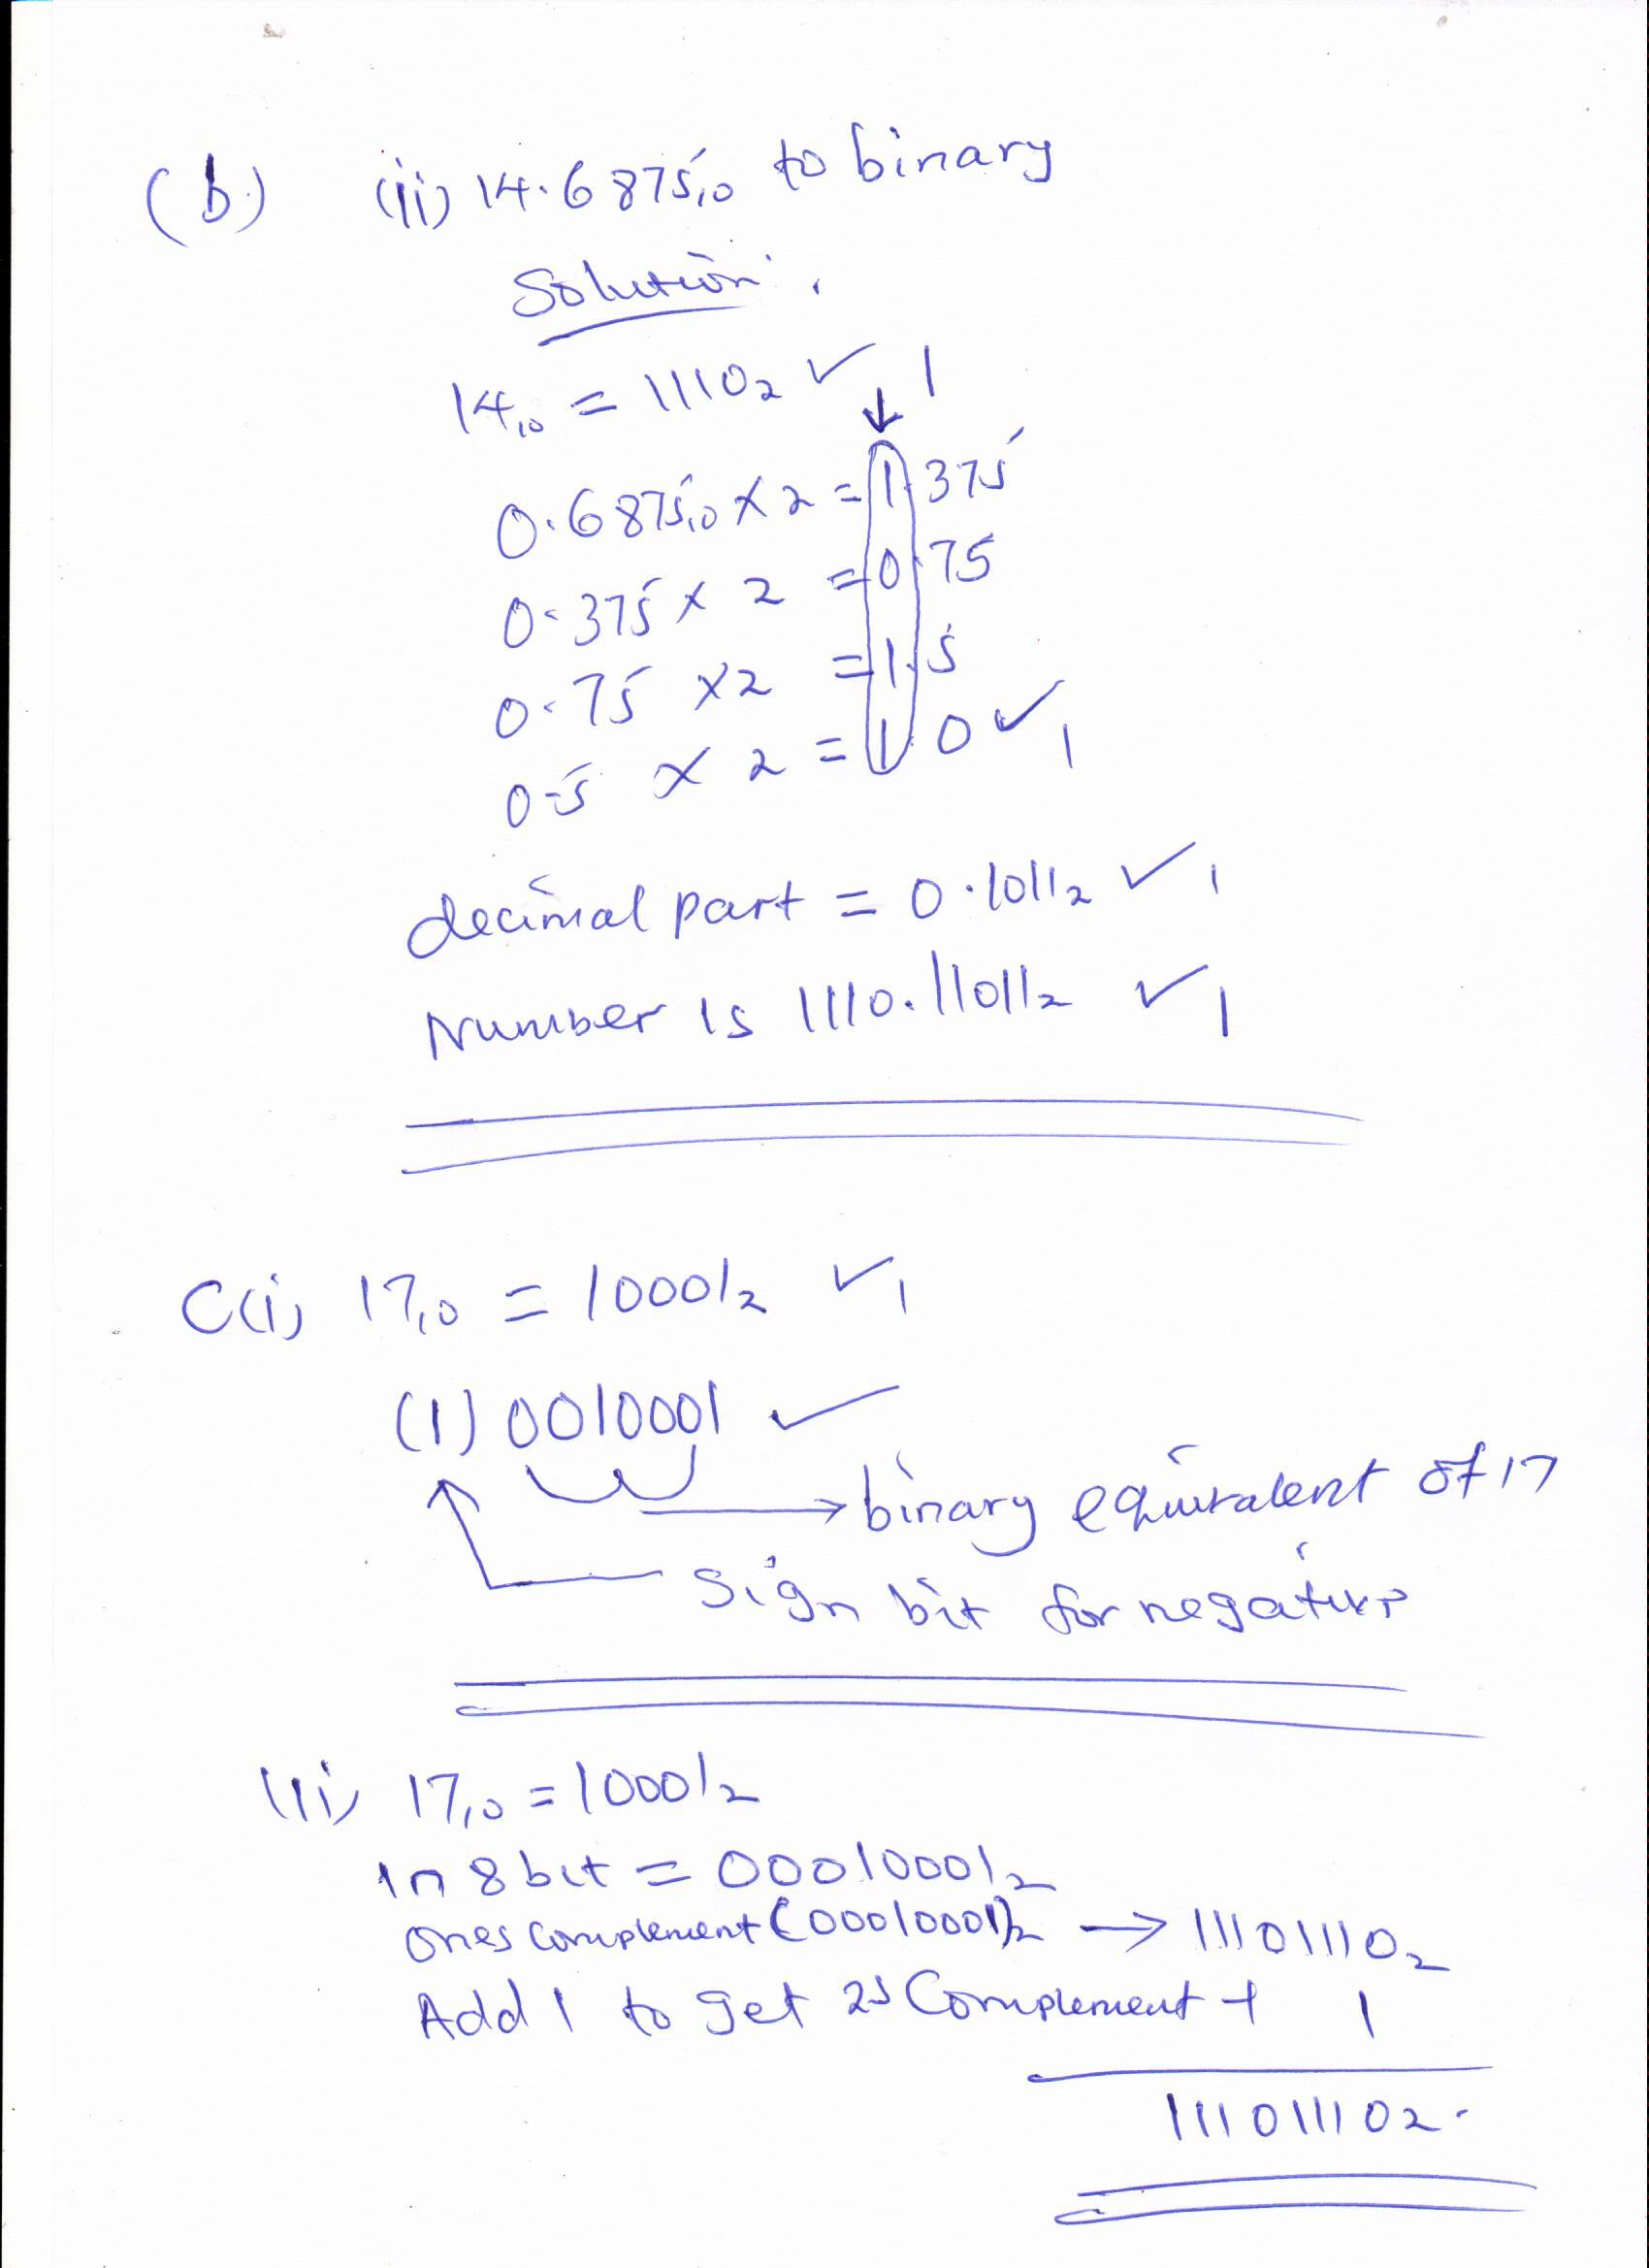 (b) (ii) 14.6875₁₀ to binary
Solution.
14₁₀ = 1110₂ ✓ 1
0.6875₁₀ × 2 = 1.375
0.375 × 2 = 0.75
0.75 × 2 = 1.5
0.5 × 2 = 1.0 ✓ 1
decimal part = 0.1011₂ ✓ 1
Number is 1110.11011₂ ✓ 1
C(i) 17₁₀ = 10001₂ ✓ 1
(1) 0010001 ✓
→ binary equivalent of 17
Sign bit for negative
(ii) 17₁₀ = 10001₂
In 8 bit = 00010001₂
Ones complement (00010001)₂ → 11101110₂
Add 1 to get 2s Complement + 1
11101110₂.